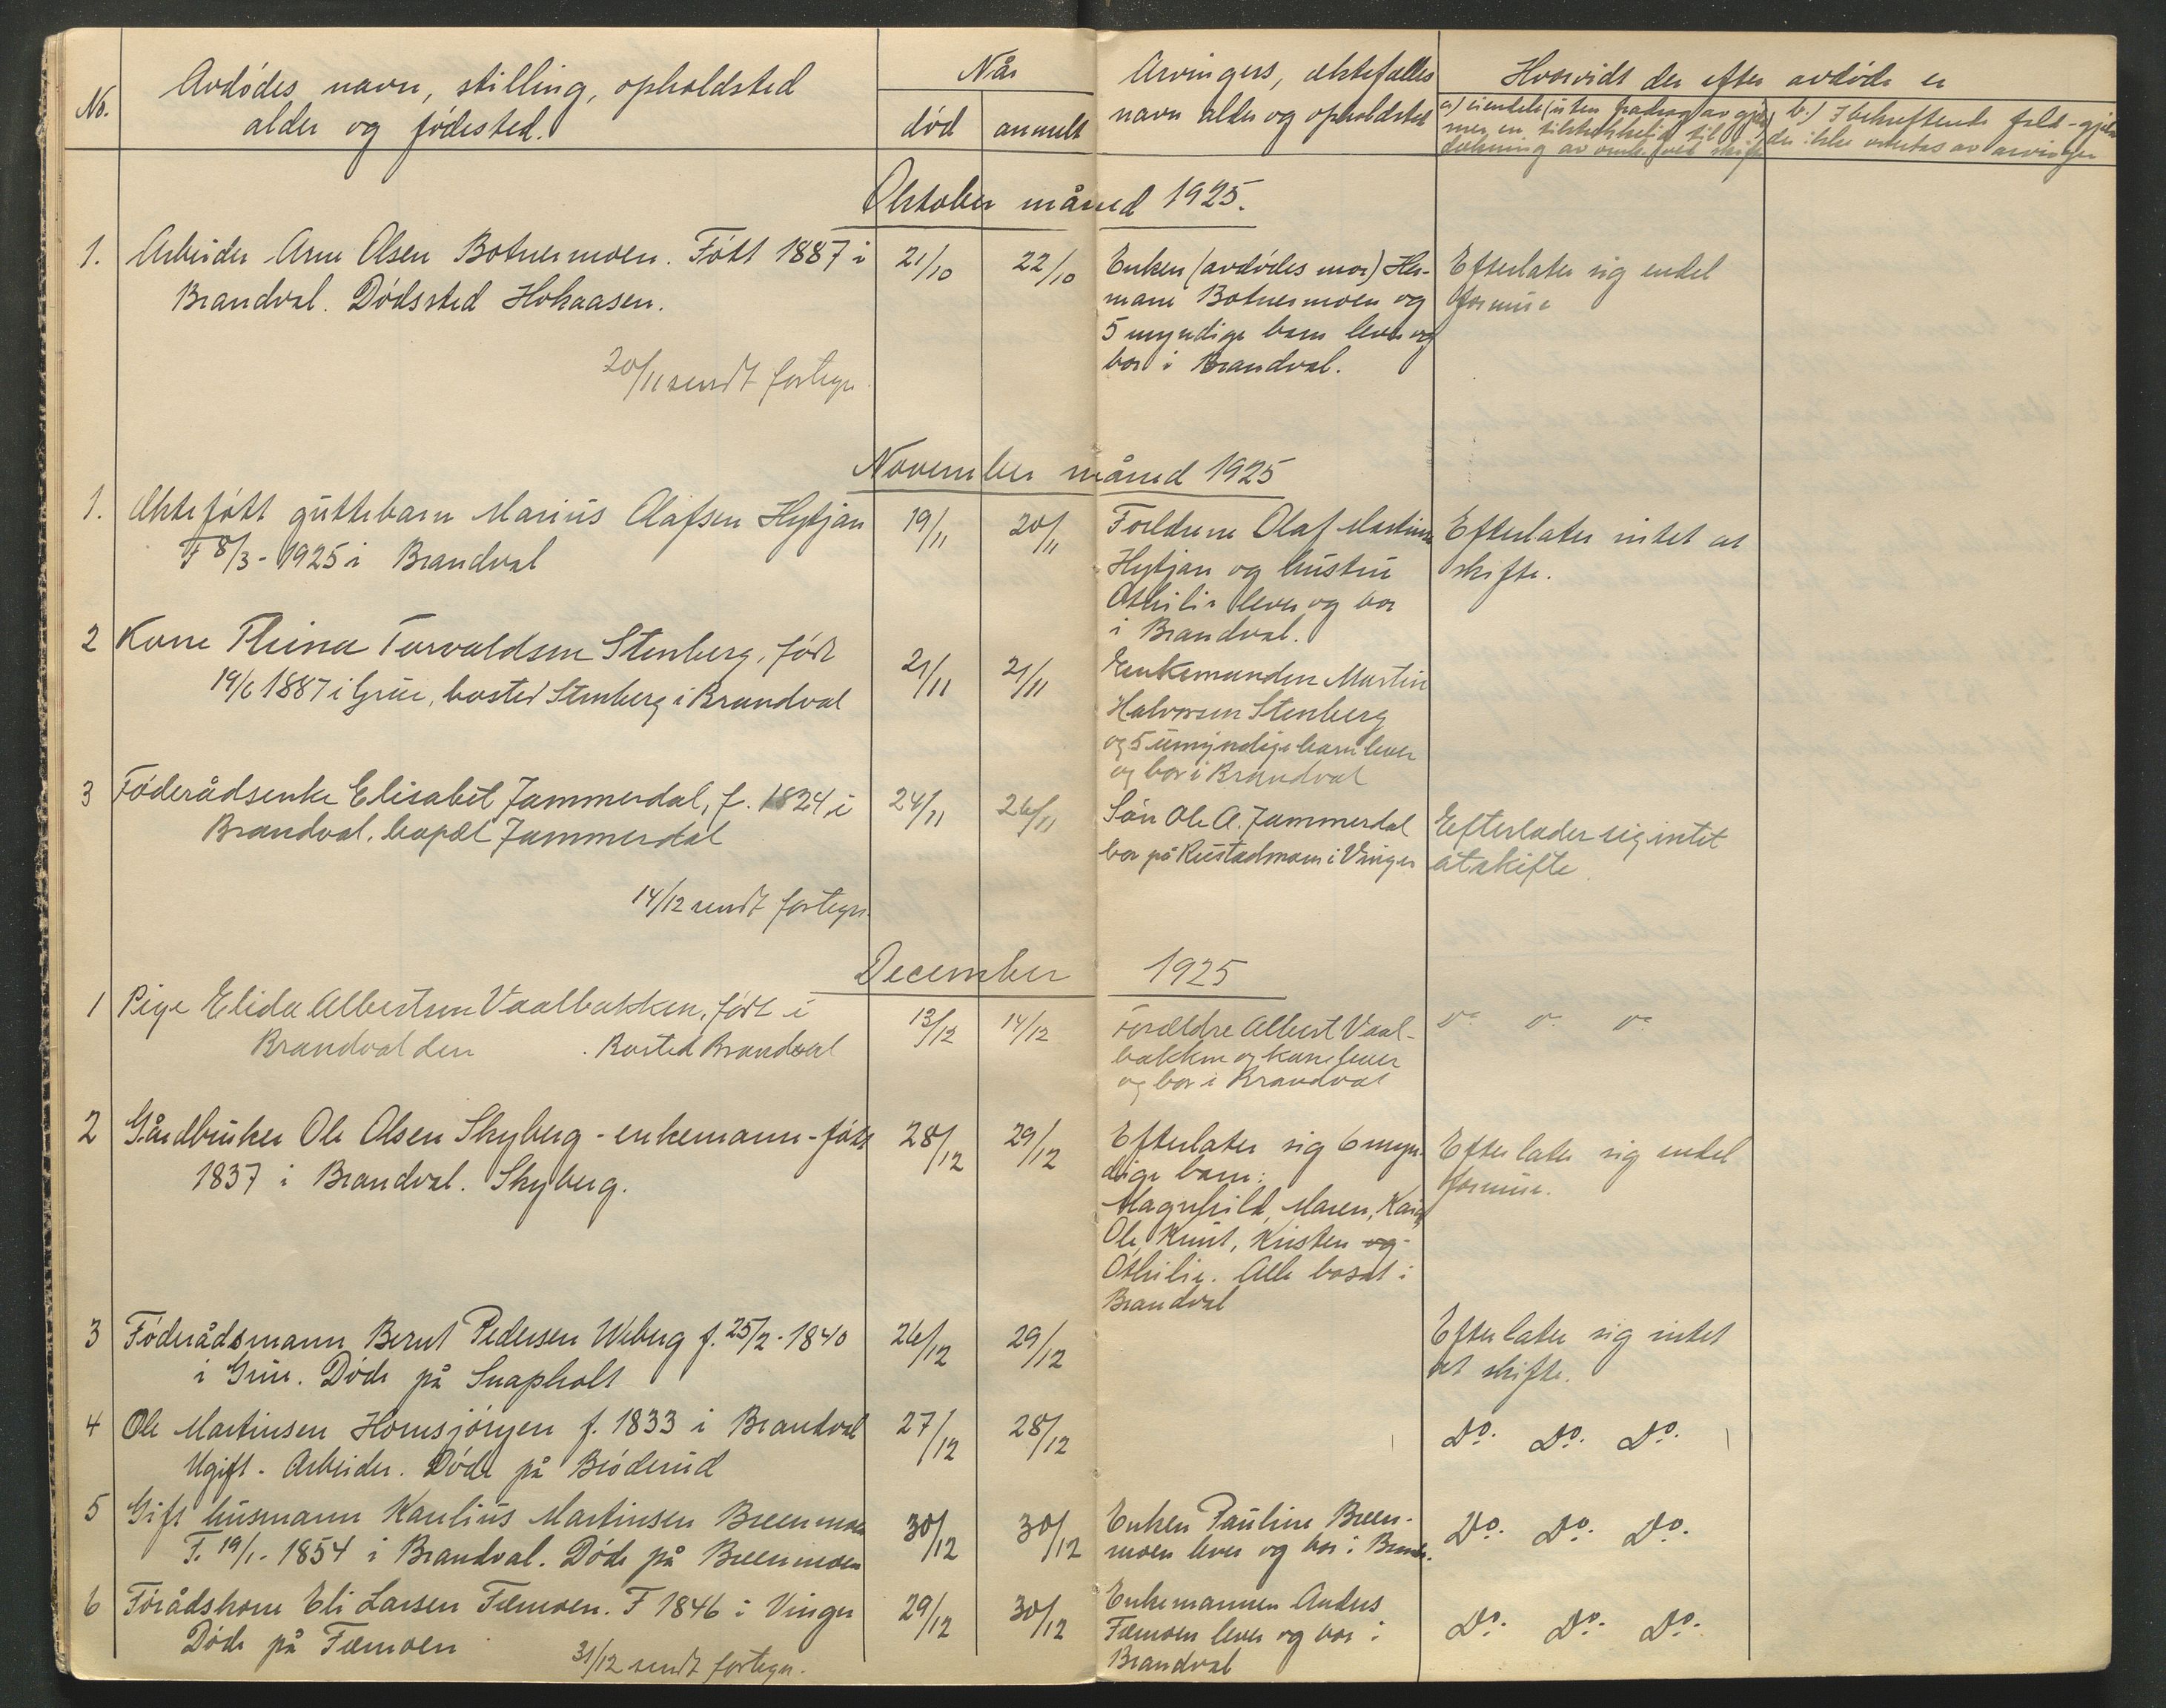 No.
Avdødes navn, stilling, opholdsted
alder og fødested.
Når
død
anmelt
Arvingers, ektefælles
navn alder og opholdsted
Hvorvidt der efter avdøde er
a) eiendele (uten fradrag av gjeld)
mer en tilstrekkelig til
dekning av omk. ved skifte
b) Ibehæftende fald-gjeld
der ikke vedtas av arvinger
Oktober måned 1925.
1.
Arbeider Arne Olsen Botnermoen. Født 1887 i
Brandval. Dødssted Hokaasen.
21/10
22/10
Enken (avdødes mor) Her-
mane Botnermoen og
5 myndige barn lever og
bor i Brandval.
Efterlater sig endel
formue
20/11 sendt fortegn.
November måned 1925
1.
Ektefødt guttebarn Marius Olafsen Hytjan
F 8/3 - 1925 i Brandval
19/11
20/11
Forldrene Olaf Martinsen
Hytjan og hustru
Othilie lever og bor
i Brandval.
Efterlater intet at
skifte.
2
Kone Thina Torvaldsen Stenberg, født
19/6 1887 i Grue, bosted Stenberg i Brandval
21/11
21/11
Enkemanden Martin
Halvorsen Stenberg
og 5 umyndige barn lever
og bor i Brandval
3
Føderådsenke Elisabet Jammerdal, f. 1824 i
Brandval, bopæl Jammerdal
24/11
26/11
Søn Ole A. Jammerdal
bor på Rustadmoen i Vinger
Efterlader sig intet
at skifte.
14/12 sendt fortegn.
December 1925
1
Pige Elida Albertsen Vaalbakken, født i
Brandval den . Bosted Brandval
13/12
14/12
Forældre Albert Vaal-
bakken og kone lever
og bor i Brandval
Do Do Do
2
Gårdbruker Ole Olsen Skyberg - enkemann - født
1837 i Brandval. Skyberg.
28/12
29/12
Efterlater sig 6 myn-
dige barn:
Magnhild, Maren, Kari,
Ole, Knut, Kristen og
Othilie. Alle bosat i
Brandval
Efterlater sig endel
formue.
3
Føderådsmann Bernt Pedersen Viberg f. 25/2 - 1840
i Grue. Døde på Snapholt
26/12
29/12
Efterlater sig intet
at skifte.
4
Ole Martinsen Hornsjøryen f. 1833 i Brandval
Ugift - Arbeider. Døde på Brøderud
27/12
28/12
Do. Do. Do.
5
Gift husmann Kaulius Martinsen Breenmoen
F. 19/1 - 1854 i Brandval. Døde på Breenmoen
30/12
30/12
Enken Pauline Breen-
moen lever og bor i Brandv.
Do. Do. Do.
6
Førådskone Eli Larsen Tæmoen. F 1846 i Vinger
Døde på Tæmoen
29/12
30/12
Enkemannen Anders
Tæmoen lever og bor i
Brandval
Do. Do. Do.
31/12 sendt fortegn.